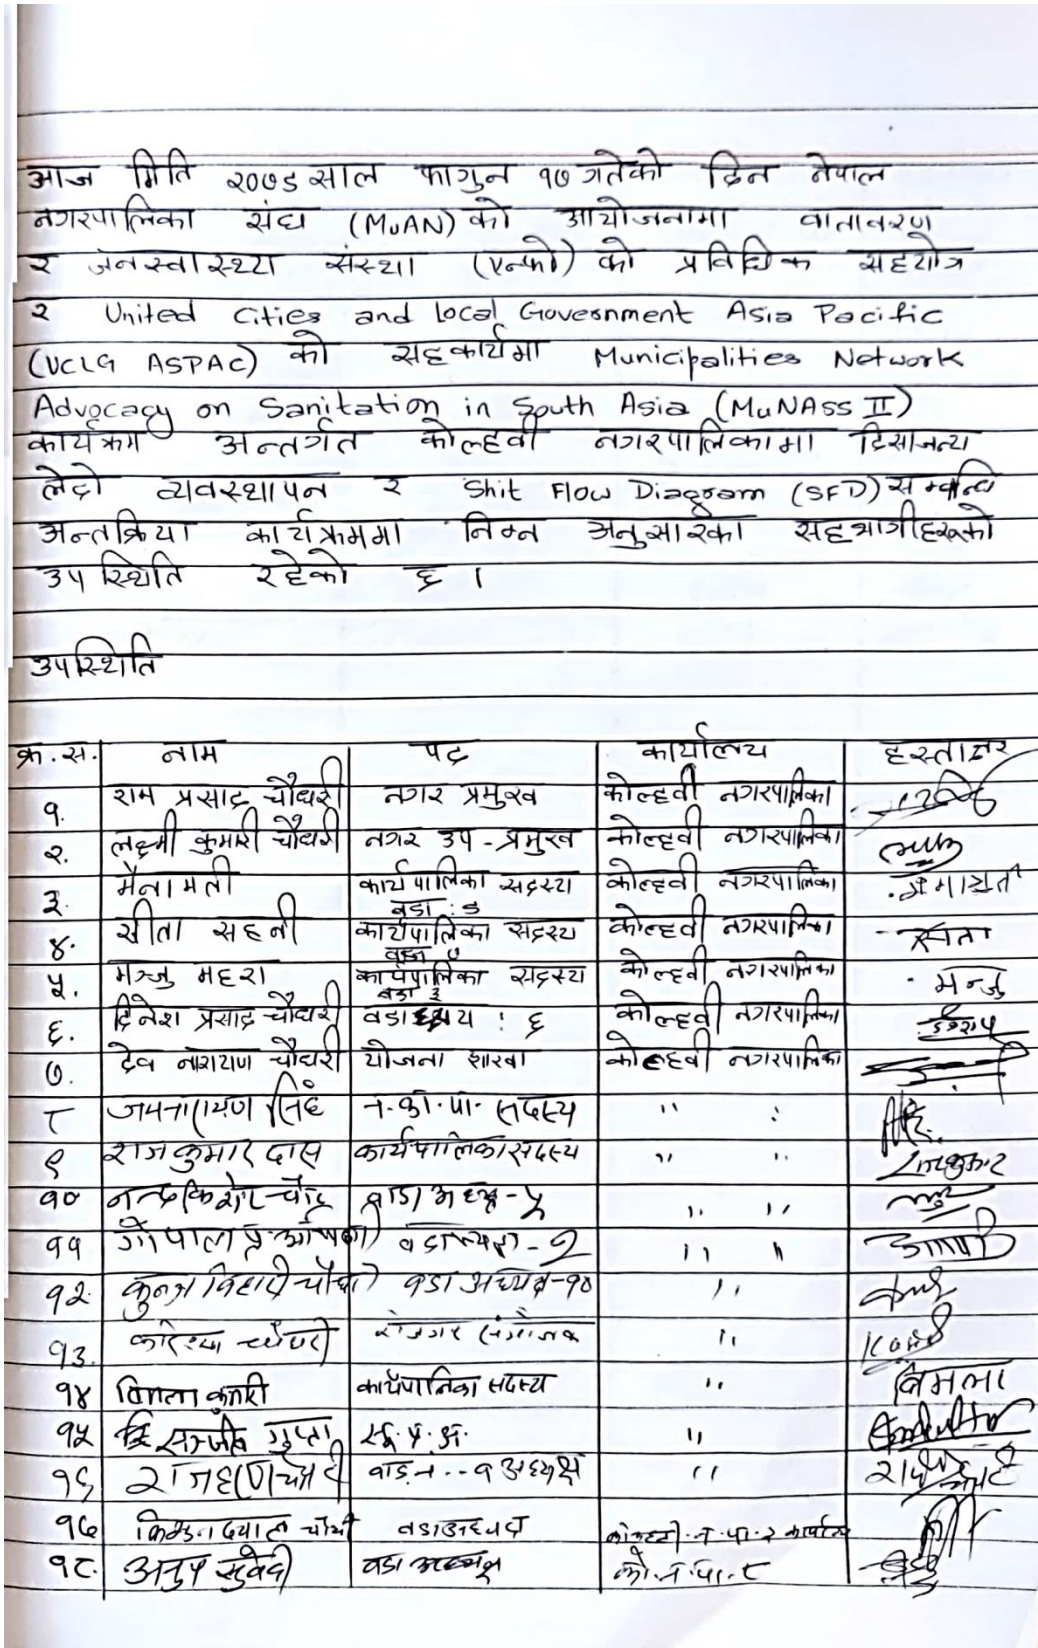 आज मिति २०७८ साल फागुन १७ गतेको दिन नेपाल
नगरपालिका संघ (MuAN) को आयोजनामा वातावरण
र जनस्वास्थ्य संस्था (एन्फो) को प्रविधिक सहयोग
र United Cities and Local Government Asia Pacific
(UCLG ASPAC) को सहकार्यमा Municipalities Network
Advocacy on Sanitation in South Asia (MuNASS II)
कार्यक्रम अन्तर्गत कोल्हवी नगरपालिकामा दिसाजन्य
लेदो व्यवस्थापन र Shit Flow Diagram (SFD) सम्बन्धि
अन्तक्रिया कार्यक्रममा निम्न अनुसारका सहभागीहरूको
उपस्थिति रहेको छ ।
उपस्थिति
क्र.स. नाम पद कार्यालय हस्ताक्षर
१. राम प्रसाद चौधरी नगर प्रमुख कोल्हवी नगरपालिका
२. लक्ष्मी कुमारी चौधरी नगर उप-प्रमुख कोल्हवी नगरपालिका
३. मैनामती कार्यपालिका सदस्य कोल्हवी नगरपालिका
वडा :
४. सीता सहनी कार्यपालिका सदस्य कोल्हवी नगरपालिका
वडा
५. मञ्जु महरा कार्यपालिका सदस्य कोल्हवी नगरपालिका मन्जु
वडा ३
६. दिनेश प्रसाद चौधरी वडाध्यक्ष : ६ कोल्हवी नगरपालिका
७. देव नारायण चौधरी योजना शाखा कोल्हवी नगरपालिका
८ जयनारायण सिंह न.का.पा. सदस्य " "
९ राजकुमार दास कार्यपालिका सदस्य " " राजकुमार
१० नन्द किशोर वडा अध्यक्ष-५ " "
११ गोपाल वडाध्यक्ष-२ " "
१२. कुन्ज विहारी चौधरी वडा अध्यक्ष-१० "
१३. चौधरी रोजगार संयोजक "
१४ विमला कुमारी कार्यपालिका सदस्य " विमला
१५ सन्जीव गुप्ता "
१६ "
१७ दयाल चौधरी वडा अध्यक्ष
१८. अनुप सुवेदी वडा अध्यक्ष को.न.पा.८